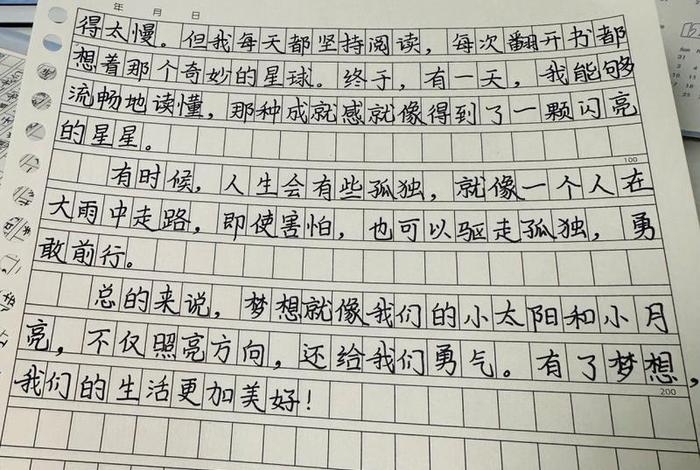 年 月 日
得太慢。但我每天都坚持阅读，每次翻开书都
想着那个奇妙的星球。终于，有一天，我能够
流畅地读懂，那种成就感就像得到了一颗闪亮
的星星。
100
有时候，人生会有些孤独，就像一个人在
大雨中走路，即使害怕，也可以驱走孤独，勇
敢前行。
总的来说，梦想就像我们的小太阳和小月
亮，不仅照亮方向，还给我们勇气。有了梦想，
200
我们的生活更加美好！